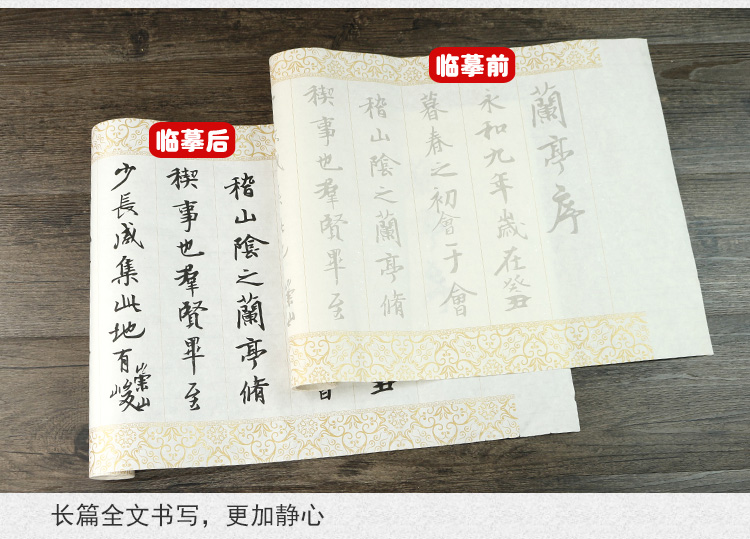 临摹前
蘭亭序
永和九年歲在癸丑
暮春之初會于會
稽山陰之蘭亭脩
禊事也羣賢畢至
崇山
临摹后
丑
稽山陰之蘭亭脩
禊事也羣賢畢至
少長咸集此地有崇山峻
长篇全文书写，更加静心